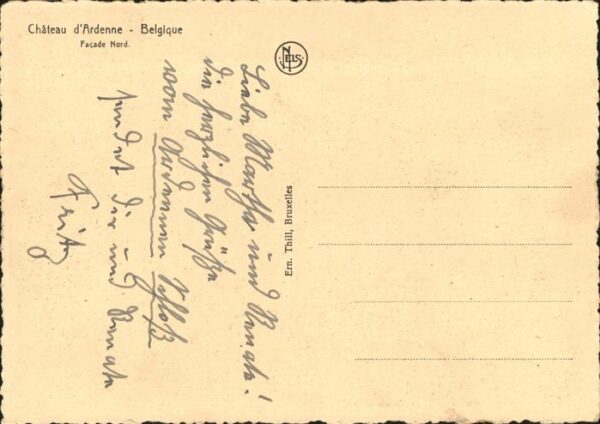 Château d'Ardenne - Belgique
Façade Nord.
NELS
Ern. Thill, Bruxelles
Liebe Martha und Renate!
die herzlichen Grüße
vom Ardennen Schloß
sendet dir und Renate
Fritz